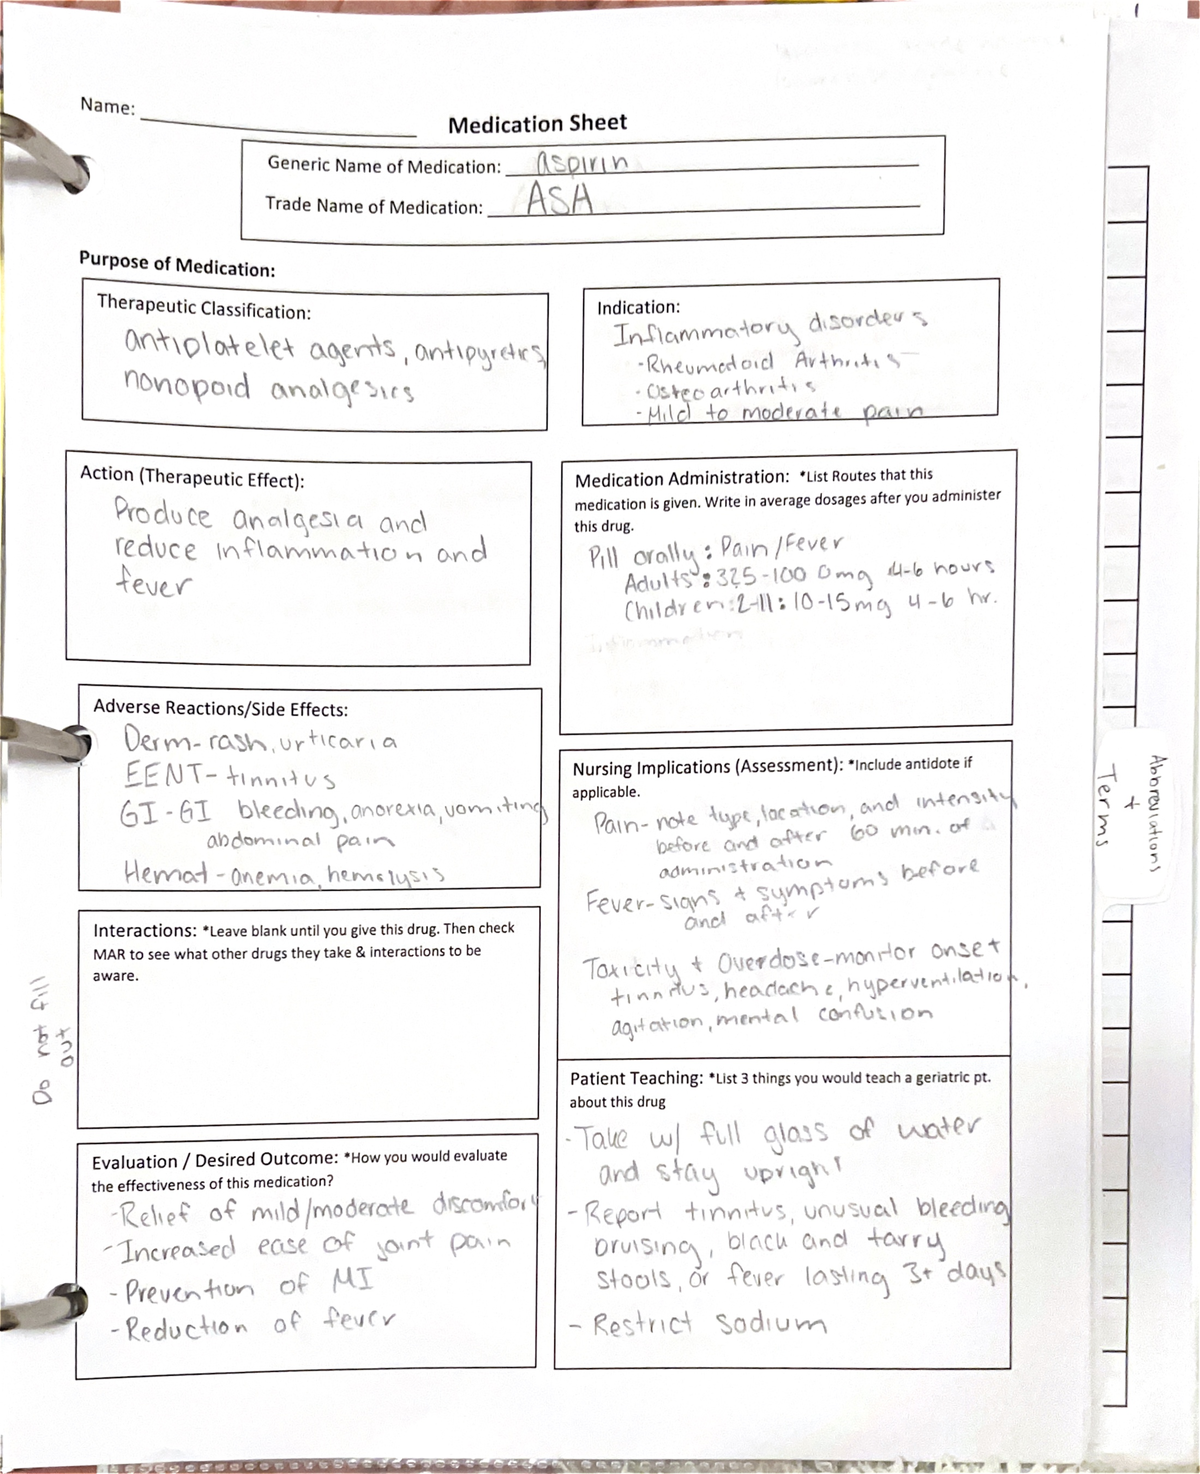 Name:
Medication Sheet
Generic Name of Medication: aspirin
Trade Name of Medication: ASA
Purpose of Medication:
Therapeutic Classification:
antiplatelet agents, antipyretics
nonopoid analgesics
Indication:
Inflammatory disorders
-Rheumatoid Arthritis
-Osteoarthritis
-Mild to moderate pain
Action (Therapeutic Effect):
Produce analgesia and
reduce inflammation and
fever
Medication Administration: *List Routes that this
medication is given. Write in average dosages after you administer
this drug.
Pill orally: Pain/Fever
Adults: 325-1000mg 4-6 hours
Children: 2-11: 10-15mg 4-6 hr.
Inflammation
Adverse Reactions/Side Effects:
Derm-rash, urticaria
EENT-tinnitus
GI-GI bleeding, anorexia, vomiting
abdominal pain
Hemat-anemia, hemolysis
Nursing Implications (Assessment): *Include antidote if
applicable.
Pain-note type, location, and intensity
before and after 60 min. of
administration
Fever-signs + symptoms before
and after
Toxicity + Overdose-monitor onset
tinnitus, headache, hyperventilation,
agitation, mental confusion
Interactions: *Leave blank until you give this drug. Then check
MAR to see what other drugs they take & interactions to be
aware.
Do not fill
out
Patient Teaching: *List 3 things you would teach a geriatric pt.
about this drug
-Take w/ full glass of water
and stay upright
-Report tinnitus, unusual bleeding
bruising, black and tarry
stools, or fever lasting 3+ days
-Restrict sodium
Evaluation / Desired Outcome: *How you would evaluate
the effectiveness of this medication?
-Relief of mild/moderate discomfort
-Increased ease of joint pain
-Prevention of MI
-Reduction of fever
Abbreviations
+
Terms